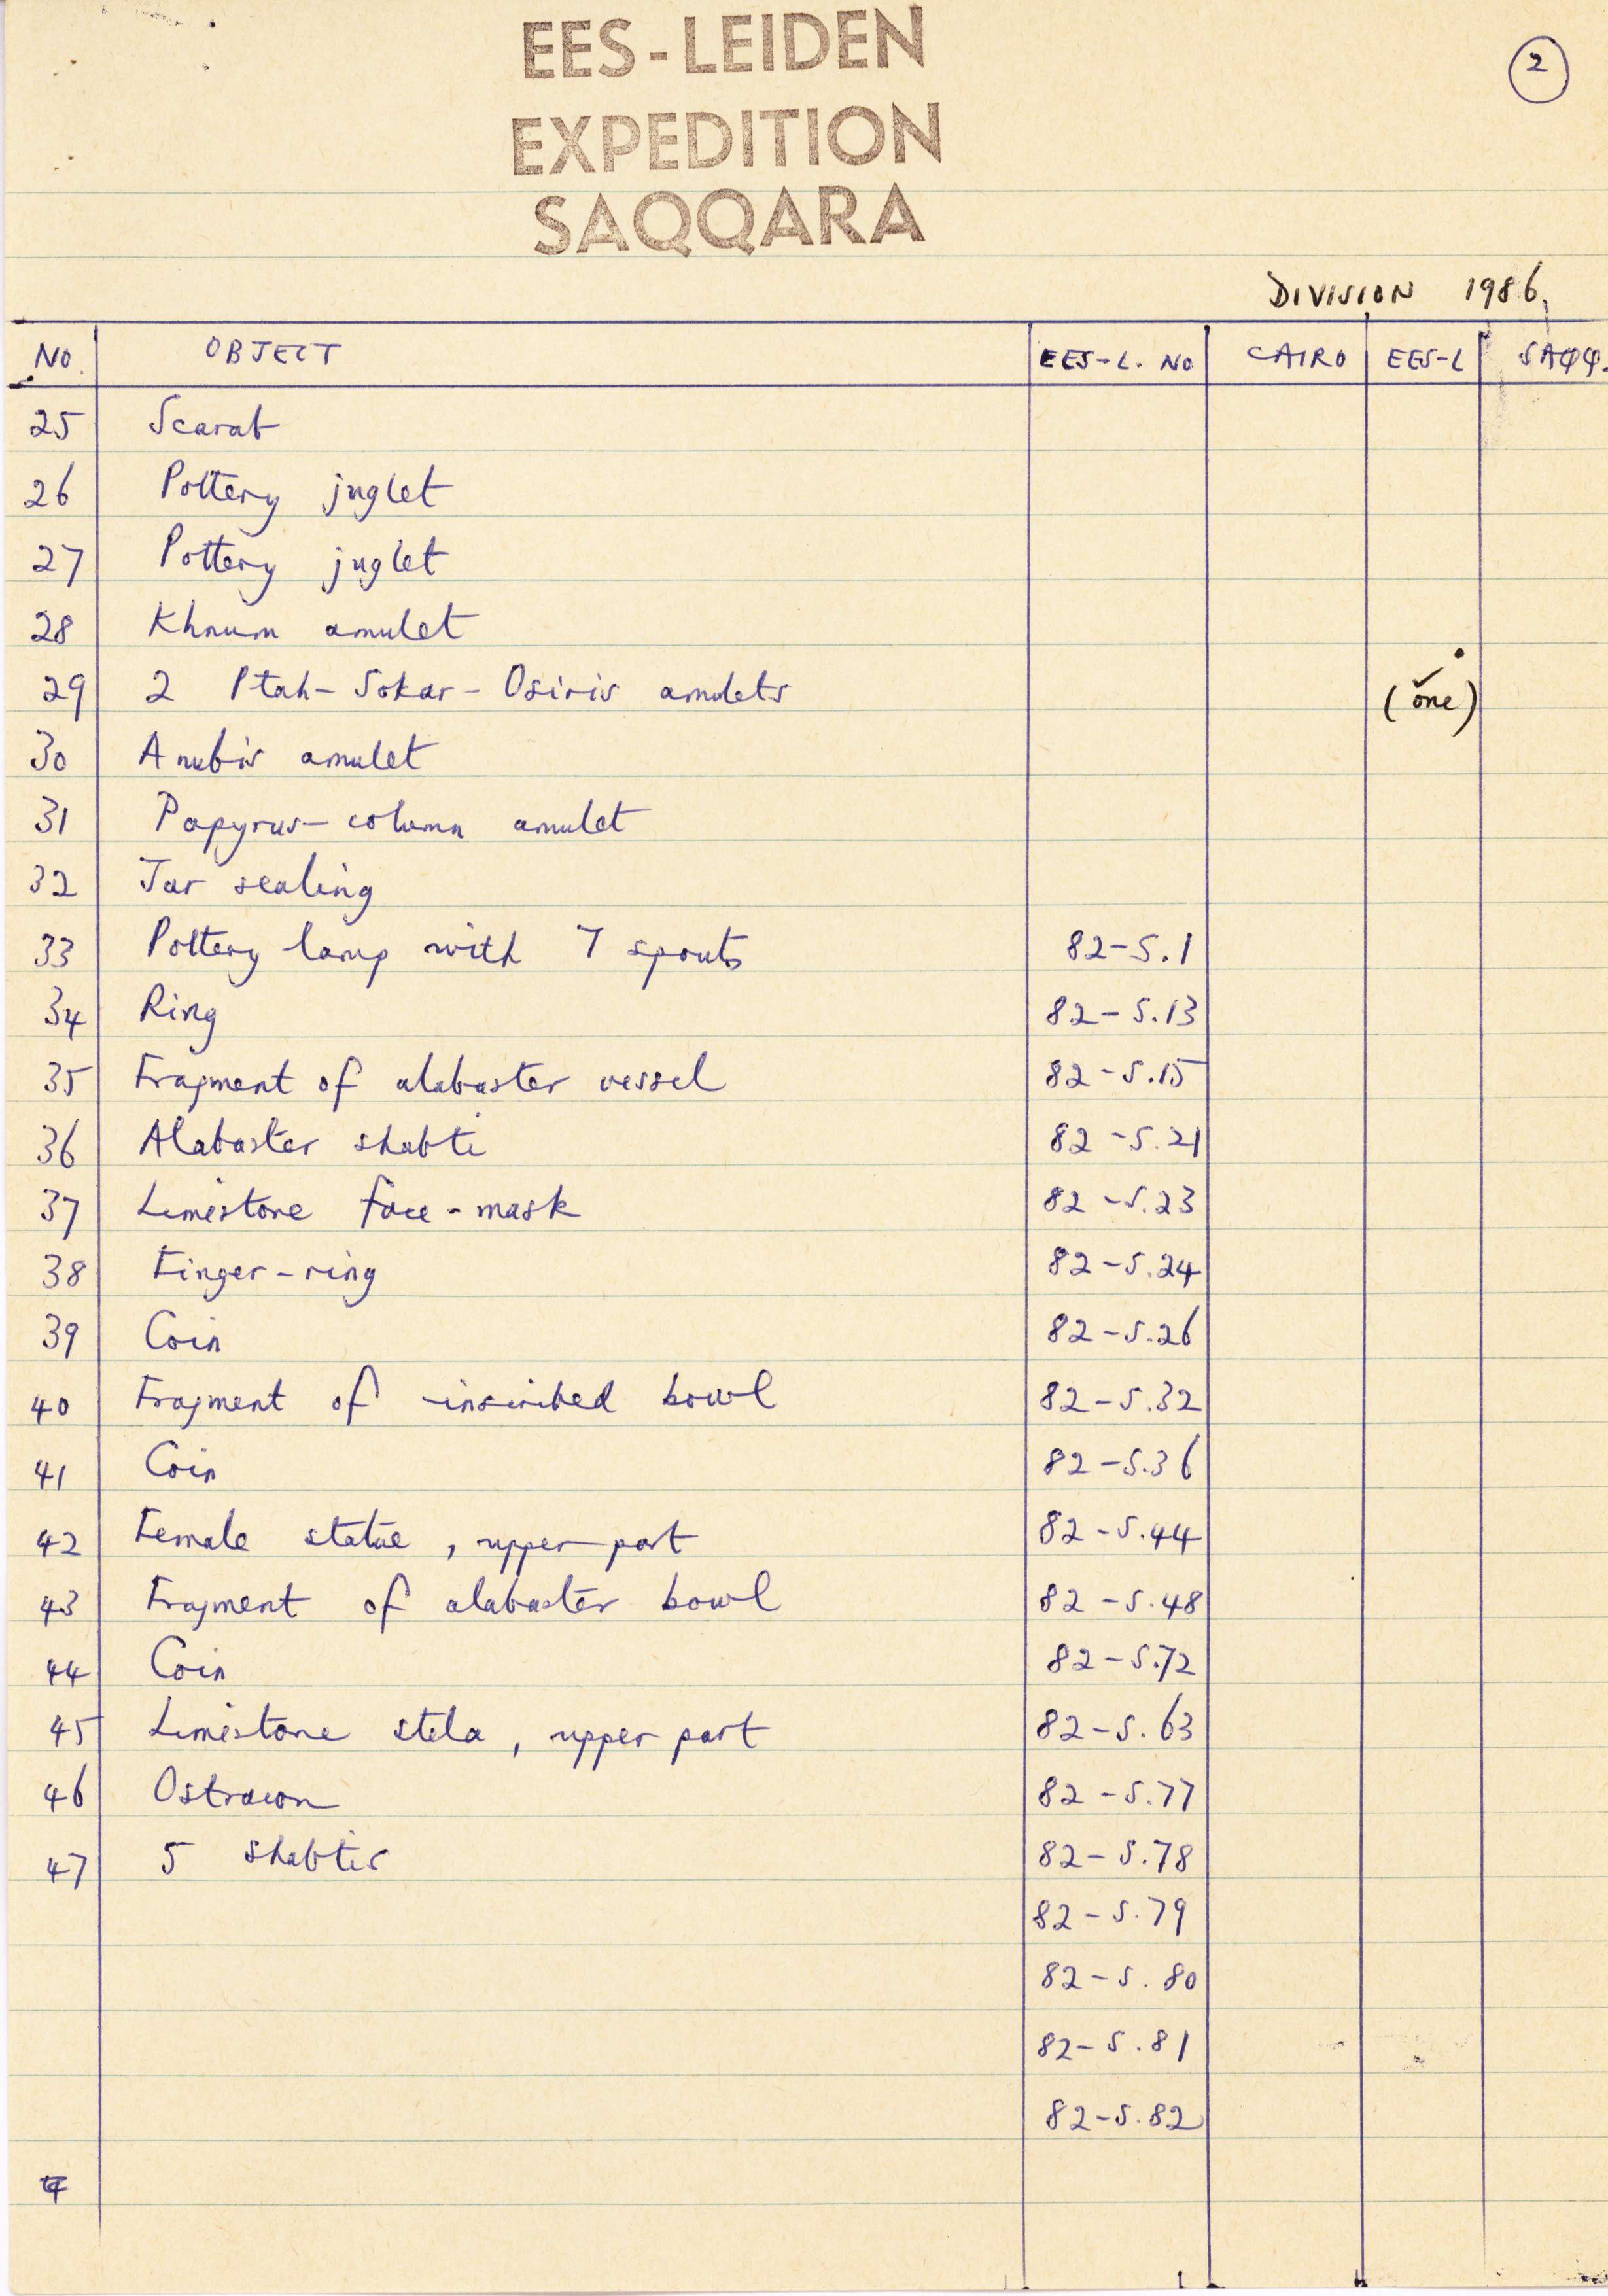 EES-LEIDEN
EXPEDITION
SAQQARA
2
DIVISION 1986.
NO. OBJECT EES-L. NO CAIRO EES-L SAQQ.
25 Scarab
26 Pottery juglet
27 Pottery juglet
28 Khnum amulet
29 2 Ptah-Sokar-Osiris amulets (one)
30 Anubis amulet
31 Papyrus-column amulet
32 Jar sealing
33 Pottery lamp with 7 spouts 82-S.1
34 Ring 82-S.13
35 Fragment of alabaster vessel 82-S.15
36 Alabaster shabti 82-S.21
37 Limestone face-mask 82-S.23
38 Finger-ring 82-S.24
39 Coin 82-S.26
40 Fragment of inscribed bowl 82-S.32
41 Coin 82-S.36
42 Female statue, upper part 82-S.44
43 Fragment of alabaster bowl 82-S.48
44 Coin 82-S.72
45 Limestone stela, upper part 82-S.63
46 Ostracon 82-S.77
47 5 shabtis 82-S.78
82-S.79
82-S.80
82-S.81
82-S.82